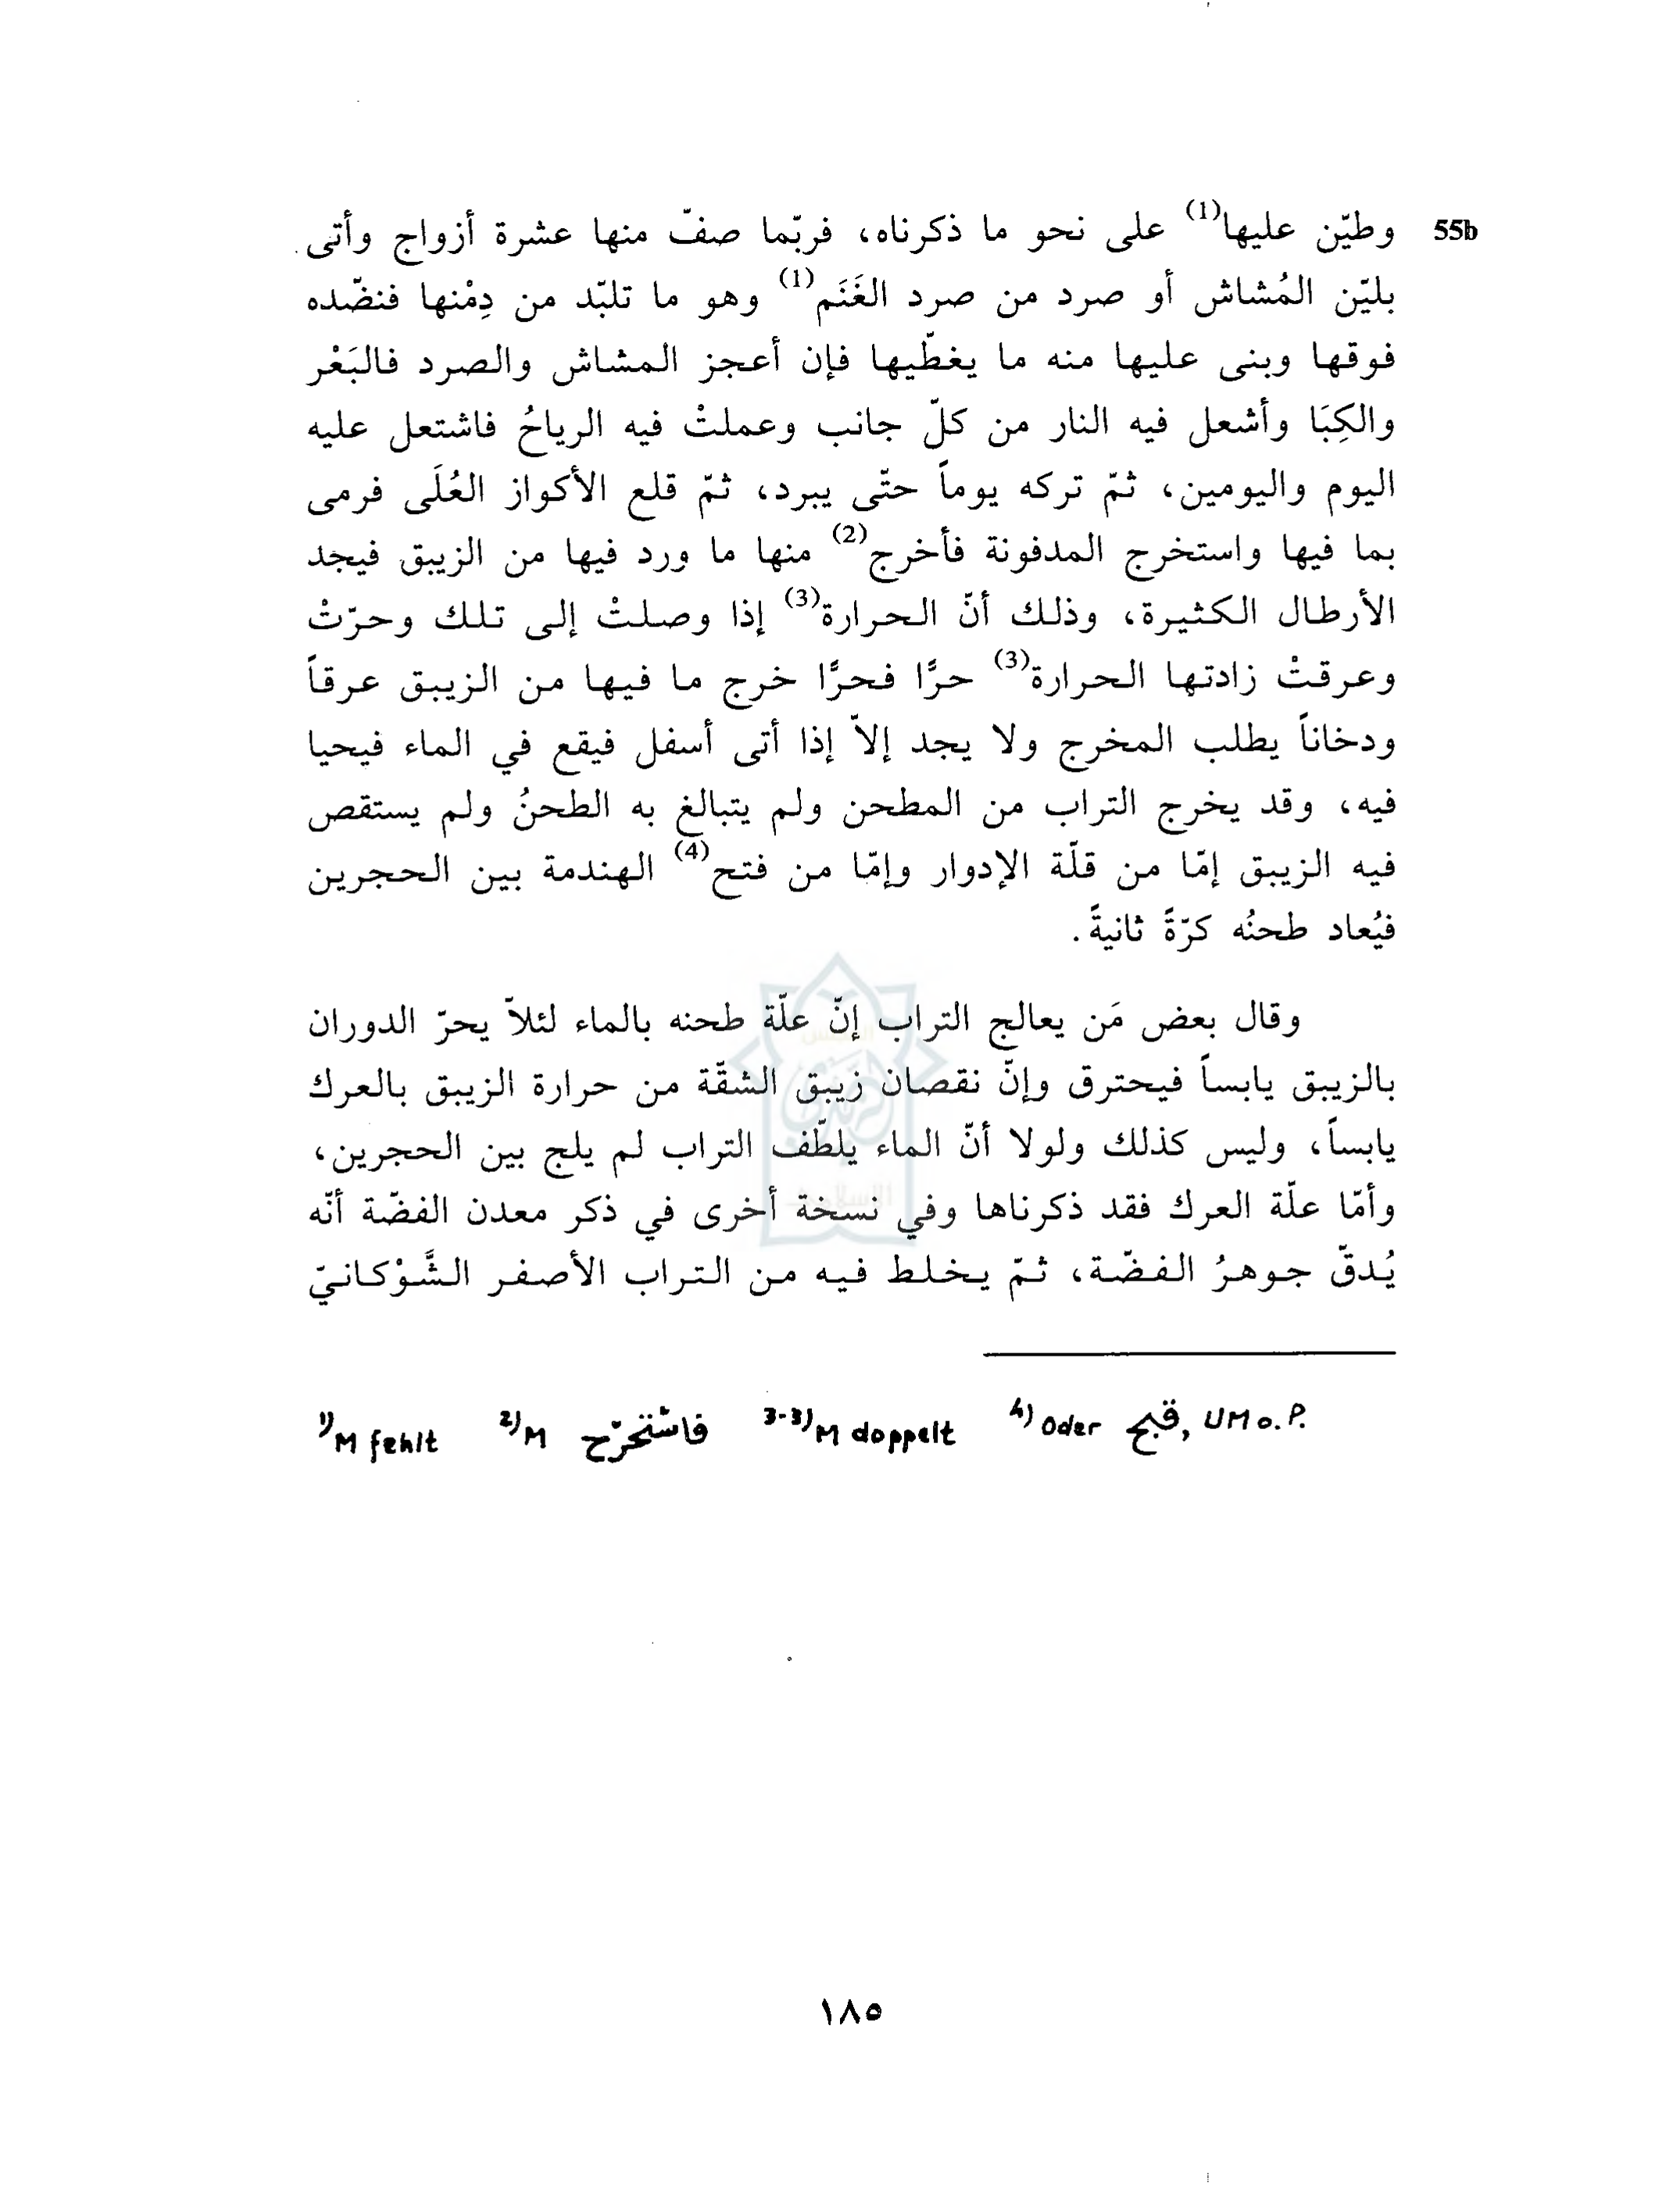 55b وطيّن عليها(1) على نحو ما ذكرناه، فربّما صفّ منها عشرة أزواج وأتى
بليّن المُشاش أو صرد من صرد الغَنَم(1) وهو ما تلبّد من دِمْنها فنضّده
فوقها وبنى عليها منه ما يغطّيها فإن أعجز المشاش والصرد فالبَعْر
والكِبَا وأشعل فيه النار من كلّ جانب وعملتْ فيه الرياحُ فاشتعل عليه
اليوم واليومين، ثمّ تركه يوماً حتّى يبرد، ثمّ قلع الأكواز العُلَى فرمى
بما فيها واستخرج المدفونة فأخرج(2) منها ما ورد فيها من الزيبق فيجد
الأرطال الكثيرة، وذلك أنّ الحرارة(3) إذا وصلتْ إلى تلك وحرّتْ
وعرقتْ زادتها الحرارة(3) حرًّا فحرًّا خرج ما فيها من الزيبق عرقاً
ودخاناً يطلب المخرج ولا يجد إلاّ إذا أتى أسفل فيقع في الماء فيحيا
فيه، وقد يخرج التراب من المطحن ولم يتبالغ به الطحنُ ولم يستقص
فيه الزيبق إمّا من قلّة الإدوار وإمّا من فتح(4) الهندمة بين الحجرين
فيُعاد طحنُه كرّةً ثانيةً.
وقال بعض مَن يعالج التراب إنّ علّة طحنه بالماء لئلاّ يحرّ الدوران
بالزيبق يابساً فيحترق وإنّ نقصان زيبق الشقّة من حرارة الزيبق بالعرك
يابساً، وليس كذلك ولولا أنّ الماء يلطّف التراب لم يلج بين الحجرين،
وأمّا علّة العرك فقد ذكرناها وفي نسخة أخرى في ذكر معدن الفضّة أنّه
يُدقّ جوهرُ الفضّة، ثمّ يخلط فيه من التراب الأصفر الشَّوْكانيّ
1) M fehlt 2) M فاسْتخرّج 3-3) M doppelt 4) Oder قبح, UM o. P.
١٨٥